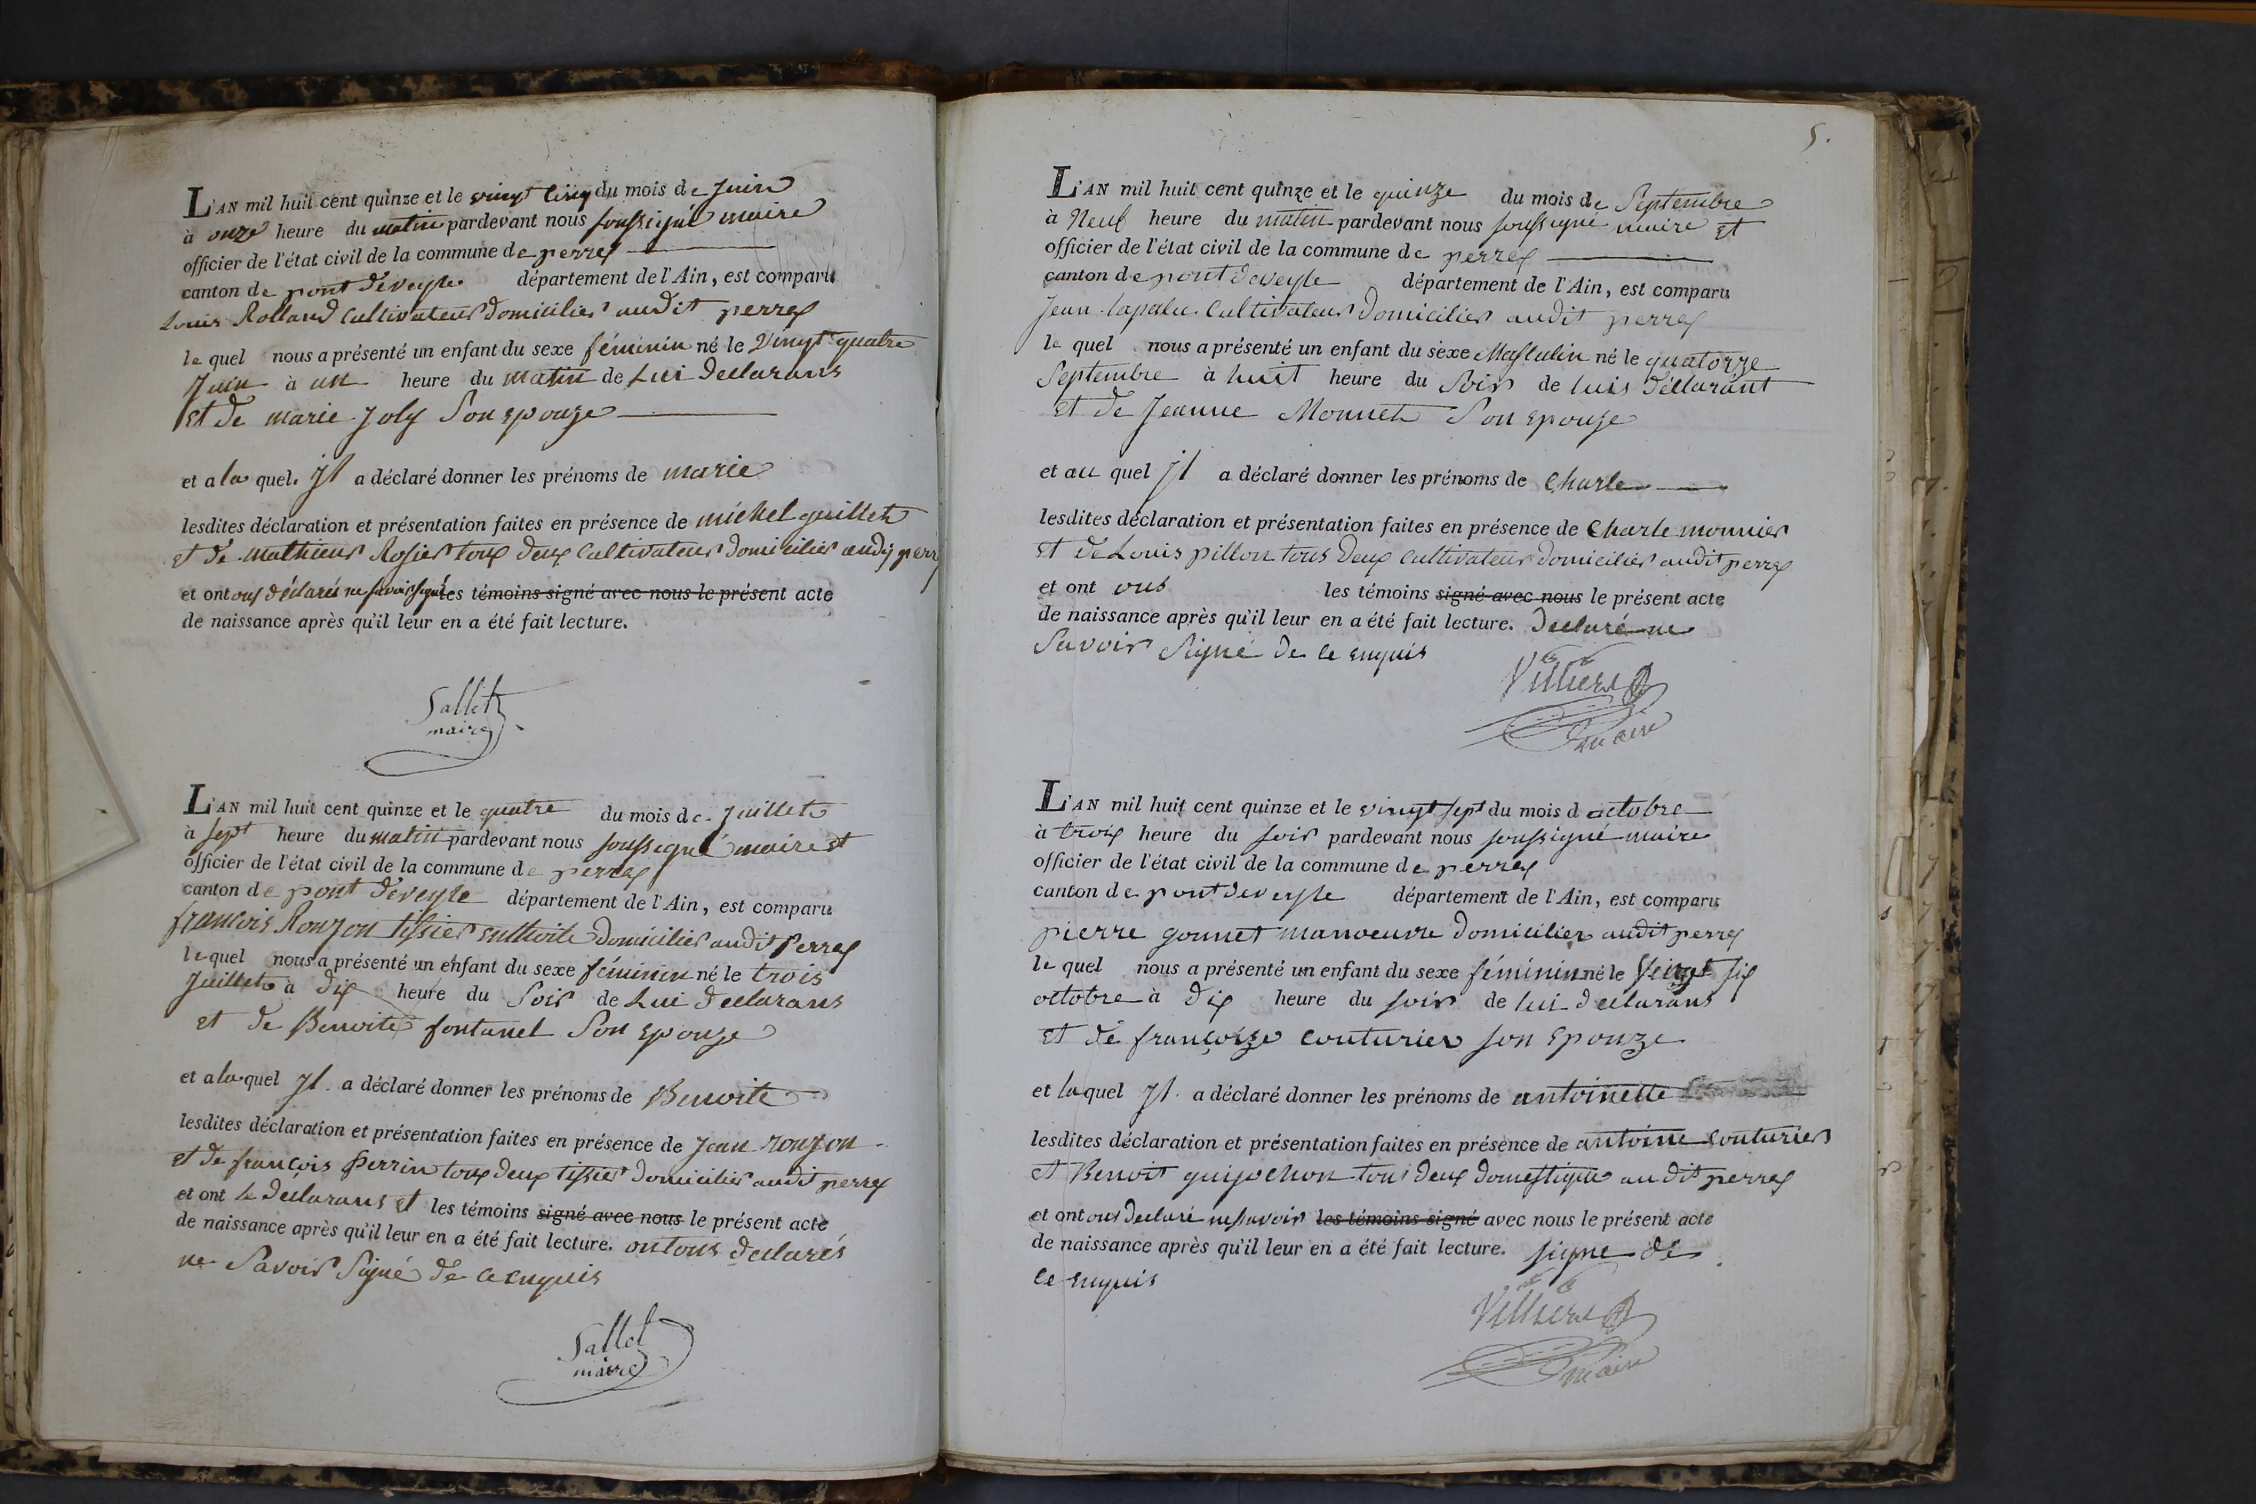 L'AN mil huit cent quinze et le vingt cinq du mois de Juin
à onze heure du matin pardevant nous soussigné maire
officier de l'état civil de la commune de perrex
canton de pont deveyle département de l'Ain, est comparu
Louis Rolland cultivateur domicilier audit perrex
le quel nous a présenté un enfant du sexe féminin né le vingt quatre
Juin à un heure du matin de Lui declarans
et de marie Joly Son epouze
et a la quel. Jl a déclaré donner les prénoms de marie
lesdites déclaration et présentation faites en présence de michel guillet
et de mathieur Rosier tous deux cultivateur domicilier audij perr
et ont ous déclarés ne savoir signé les témoins signé avec nous le présent acte
de naissance après qu'il leur en a été fait lecture.
Sallet
maire
L'AN mil huit cent quinze et le quatre du mois de Juillet
à sept heure du matin pardevant nous soussigné maire et
officier de l'état civil de la commune de perrex
canton de pont deveyle département de l'Ain, est comparu
francois Ronzon tissier domicilier audit Perrex
le quel nous a présenté un enfant du sexe féminin né le trois
Juillet à dix heure du Soir de Lui declarans
et de Benoite fontanel Son epouze
et a la quel Jl a déclaré donner les prénoms de Benoite
lesdites déclaration et présentation faites en présence de Jean ronzon
et de françois Perrin tous deux tissier domicilier audit perrex
et ont le déclarans et les témoins signé avec nous le présent acte
de naissance après qu'il leur en a été fait lecture. ontous declarés
ne Savoir Signé de ce enquis
Sallet
maire
5.
L'AN mil huit cent quinze et le quinze du mois de Septembre
à Neuf heure du matin pardevant nous soussigné maire et
officier de l'état civil de la commune de perrex
canton de pont deveyle département de l'Ain, est comparu
Jean lapalu cultivateur domicilier audit perrex
le quel nous a présenté un enfant du sexe Masculin né le quatorze
Septembre à huit heure du Soir de luis déclarant
et de Jeanne Monnet Son epouze
et au quel Jl a déclaré donner les prénoms de Charle
lesdites déclaration et présentation faites en présence de Charle monnier
et de Louis pillon tous deux cultivateur domicilier audit perrex
et ont ous les témoins signé avec nous le présent acte
de naissance après qu'il leur en a été fait lecture. Declaré ne
Savoir Signé de ce enquis
Villiers
maire
L'AN mil huit cent quinze et le vingt sept du mois d octobre
à trois heure du soir pardevant nous soussigné maire
officier de l'état civil de la commune de perrex
canton de pont deveyle département de l'Ain, est comparu
pierre gonnet manoeuvre domicilier audit perrex
le quel nous a présenté un enfant du sexe féminin né le Vingt six
octobre à dix heure du soir de lui declarans
et de françoize couturier son epouze
et la quel Jl a déclaré donner les prénoms de antoinette
lesdites déclaration et présentation faites en présence de antoine couturier
et Benoit guijochon tous deux domestique audit perrex
et ont ous declaré ne savoir les témoins signé avec nous le présent acte
de naissance après qu'il leur en a été fait lecture. signe de
ce enquis
Villiers
maire